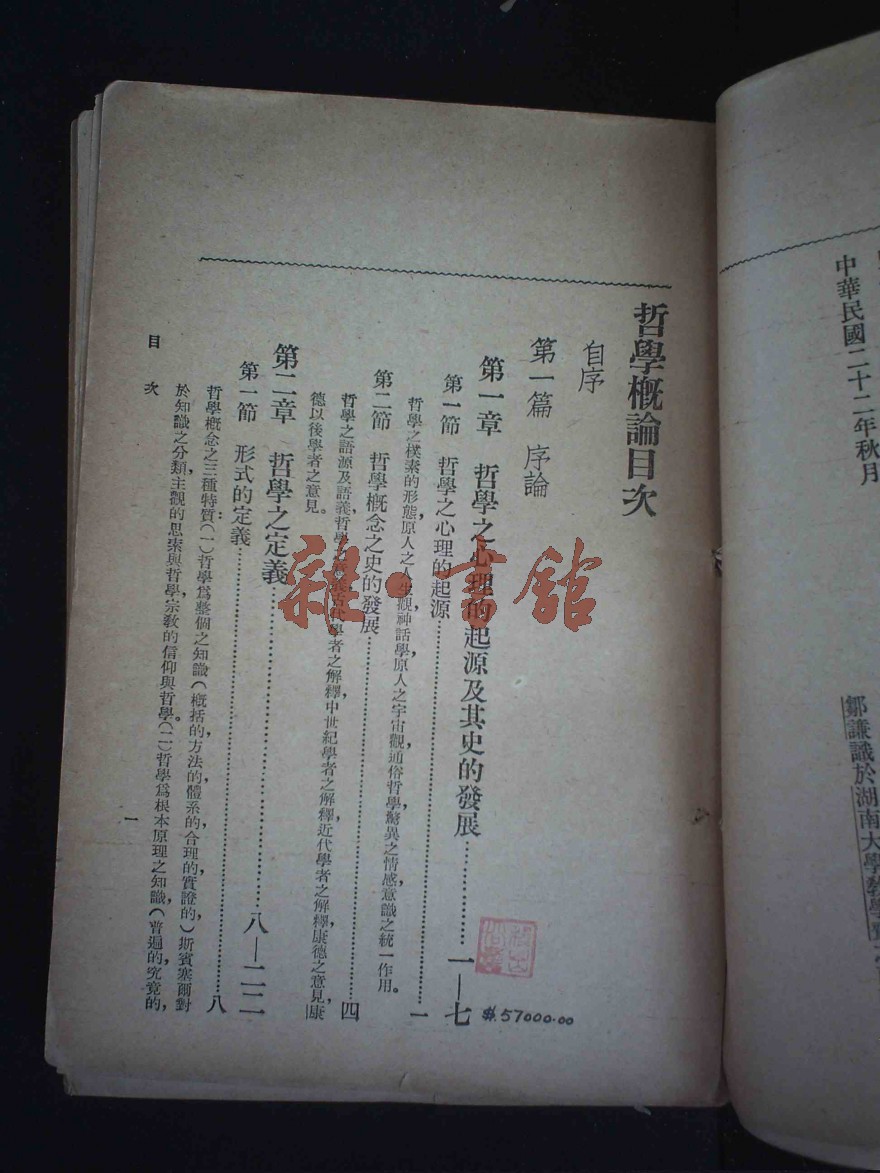 中華民國二十二年秋月
鄒謙識於湖南大學教學
哲學概論目次
自序
第一篇 序論
第一章 哲學之心理的起源及其史的發展………一—七
第一節 哲學之心理的起源………一
哲學之樸素的形態，原人之人生觀，神話學，原人之宇宙觀，通俗哲學，驚異之情感，意識之統一作用。
第二節 哲學概念之史的發展………四
哲學之語源及語義，哲學之 古代學者之解釋，中世紀學者之解釋，近代學者之解釋，康德之意見，康
德以後學者之意見。
第二章 哲學之定義………八—二二
第一節 形式的定義………八
哲學概念之三種特質：（一）哲學爲整個之知識（概括的，方法的，體系的，合理的，實證的，）斯賓塞爾對
於知識之分類，主觀的思索與哲學，宗教的信仰與哲學。（二）哲學爲根本原理之知識，（普遍的，究竟的，
目次
一
$57000.00
雜·書館